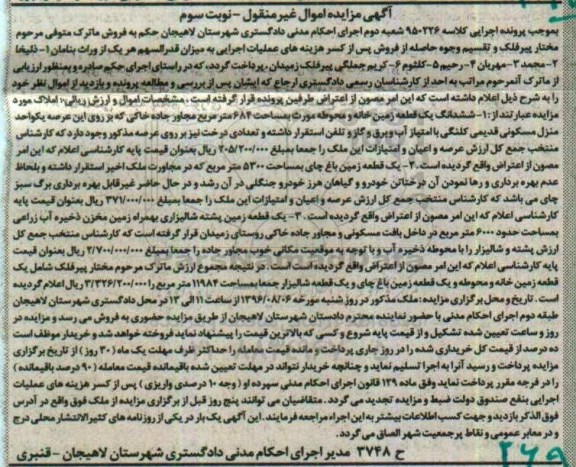 آگهی مزایده اموال غیر منقول - نوبت سوم
بموجب پرونده اجرایی کلاسه ۹۵۰۲۲۶ شعبه دوم اجرای احکام مدنی دادگستری شهرستان لاهیجان حکم به فروش ماترک متوفی مرحوم
مختار پیرفلک و تقسیم وجوه حاصله از فروش پس از کسر هزینه های عملیات اجرایی به میزان قدرالسهم هر یک از وراث بنامان ۱- ذلیخا
۲- محمد ۳- مهربان ۴- رحیم ۵- کلثوم ۶- کریم جملگی پیرفلک زمیدان، پرداخت گردد، که در راستای اجرای حکم صادره و بمنظور ارزیابی
از ماترک آنمرحوم مراتب به احد از کارشناسان رسمی دادگستری ارجاع که ایشان پس از بررسی و مطالعه پرونده و بازدید از املاک نظر خود
را به شرح ذیل اعلام داشته است که این امر مصون از اعتراض طرفین پرونده قرار گرفته است. مشخصات اموال و ارزش ریالی: املاک مورد
مزایده عبارتند از: ۱- ششدانگ یک قطعه زمین خانه و محوطه مورث بمساحت ۶۸۴ متر مربع مجاور جاده خاکی که بر روی این عرصه یکواحد
منزل مسکونی قدیمی کلنگی با امتیاز آب و برق و گاز و تلفن استقرار داشته و تعدادی درخت نیز بر روی عرصه مذکور وجود دارد که کارشناس
منتخب جمع کل ارزش عرصه و اعیان و امتیازات این ملک را جمعا بمبلغ ۲۰۵/۲۰۰/۰۰۰ ریال بعنوان قیمت پایه کارشناسی اعلام که این امر
مصون از اعتراض واقع گردیده است. ۲- یک قطعه زمین باغ چای بمساحت ۵۳۰۰ متر مربع که در مجاورت ملک اخیر استقرار داشته و بلحاظ
عدم بهره برداری و رها نمودن آن درختان خودرو و گیاهان هرز خودرو و جنگلی در آن رشد و در حال حاضر غیر قابل بهره برداری برگ سبز
چای می باشد که کارشناس منتخب جمع کل ارزش عرصه و اعیان و امتیازات این ملک را جمعا بمبلغ ۳۷۱/۰۰۰/۰۰۰ ریال بعنوان قیمت پایه
کارشناسی اعلام که این امر مصون از اعتراض واقع گردیده است. ۳- یک قطعه زمین پشته شالیزاری بهمراه زمین مخزن ذخیره آب زراعی
بمساحت حدود ۶۰۰۰ متر مربع در داخل بافت مسکونی و مجاور جاده خاکی روستای زمیدان قرار گرفته است که کارشناس منتخب جمع کل
ارزش پشته و شالیزار را با محوطه ذخیره آب و با توجه به موقعیت مکانی خوب مجاور جاده را جمعا بمبلغ ۲/۷۰۰/۰۰۰/۰۰۰ ریال بعنوان قیمت
پایه کارشناسی اعلام که این امر مصون از اعتراض واقع گردیده است است. در نتیجه مجموع ارزش ماترک مرحوم مختار پیرفلک شامل یک
قطعه زمین خانه و محوطه و یک قطعه زمین باغ چای و یک قطعه شالیزار جمعا بمساحت ۱۱۹۸۴ متر مربع را ۳/۳۲۶/۲۰۰/۰۰۰ ریال اعلام گردیده
است. تاریخ و محل برگزاری مزایده: ملک مذکور در روز شنبه مورخه ۱۳۹۶/۰۸/۰۶ از ساعت ۱۱ الی ۱۳ در محل دادگستری شهرستان لاهیجان
طبقه دوم اجرای احکام مدنی با حضور نماینده محترم دادستان شهرستان لاهیجان از طریق مزایده حضوری به فروش می رسد و مزایده در
روز و ساعت تعیین شده تشکیل و از قیمت پایه شروع و کسی که بالاترین قیمت را پیشنهاد نماید فروخته خواهد شد و خریدار موظف است
ده درصد از قیمت کل خریداری شده را در روز جاری پرداخت و مانده قیمت معامله را حداکثر ظرف مهلت یک ماه (۳۰ روز) از تاریخ برگزاری
مزایده پرداخت و رسید آنرا به اجرا تسلیم نماید و چنانچه خریدار نتواند در مهلت تعیین شده باقیمانده قیمت معامله (۹۰ درصد باقیمانده)
را در فرجه مقرر پرداخت نماید وفق ماده ۱۲۹ قانون اجرای احکام مدنی سپرده او (وجه ۱۰ درصدی واریزی) پس از کسر هزینه های عملیات
اجرایی بنفع صندوق دولت ضبط و مزایده تجدید می گردد. متقاضیان می توانند پنج روز قبل از برگزاری مزایده از ملک فوق واقع در آدرس
فوق الذکر بازدید و جهت کسب اطلاعات بیشتر به این اجراء مراجعه فرمایند. این آگهی یک بار در یکی از روزنامه های کثیرالانتشار محلی درج
و در معابر عمومی و نقاط پر جمعیت شهر الصاق می گردد.
ح ۳۷۴۸ مدیر اجرای احکام مدنی دادگستری شهرستان لاهیجان - قنبری
۲۶۹